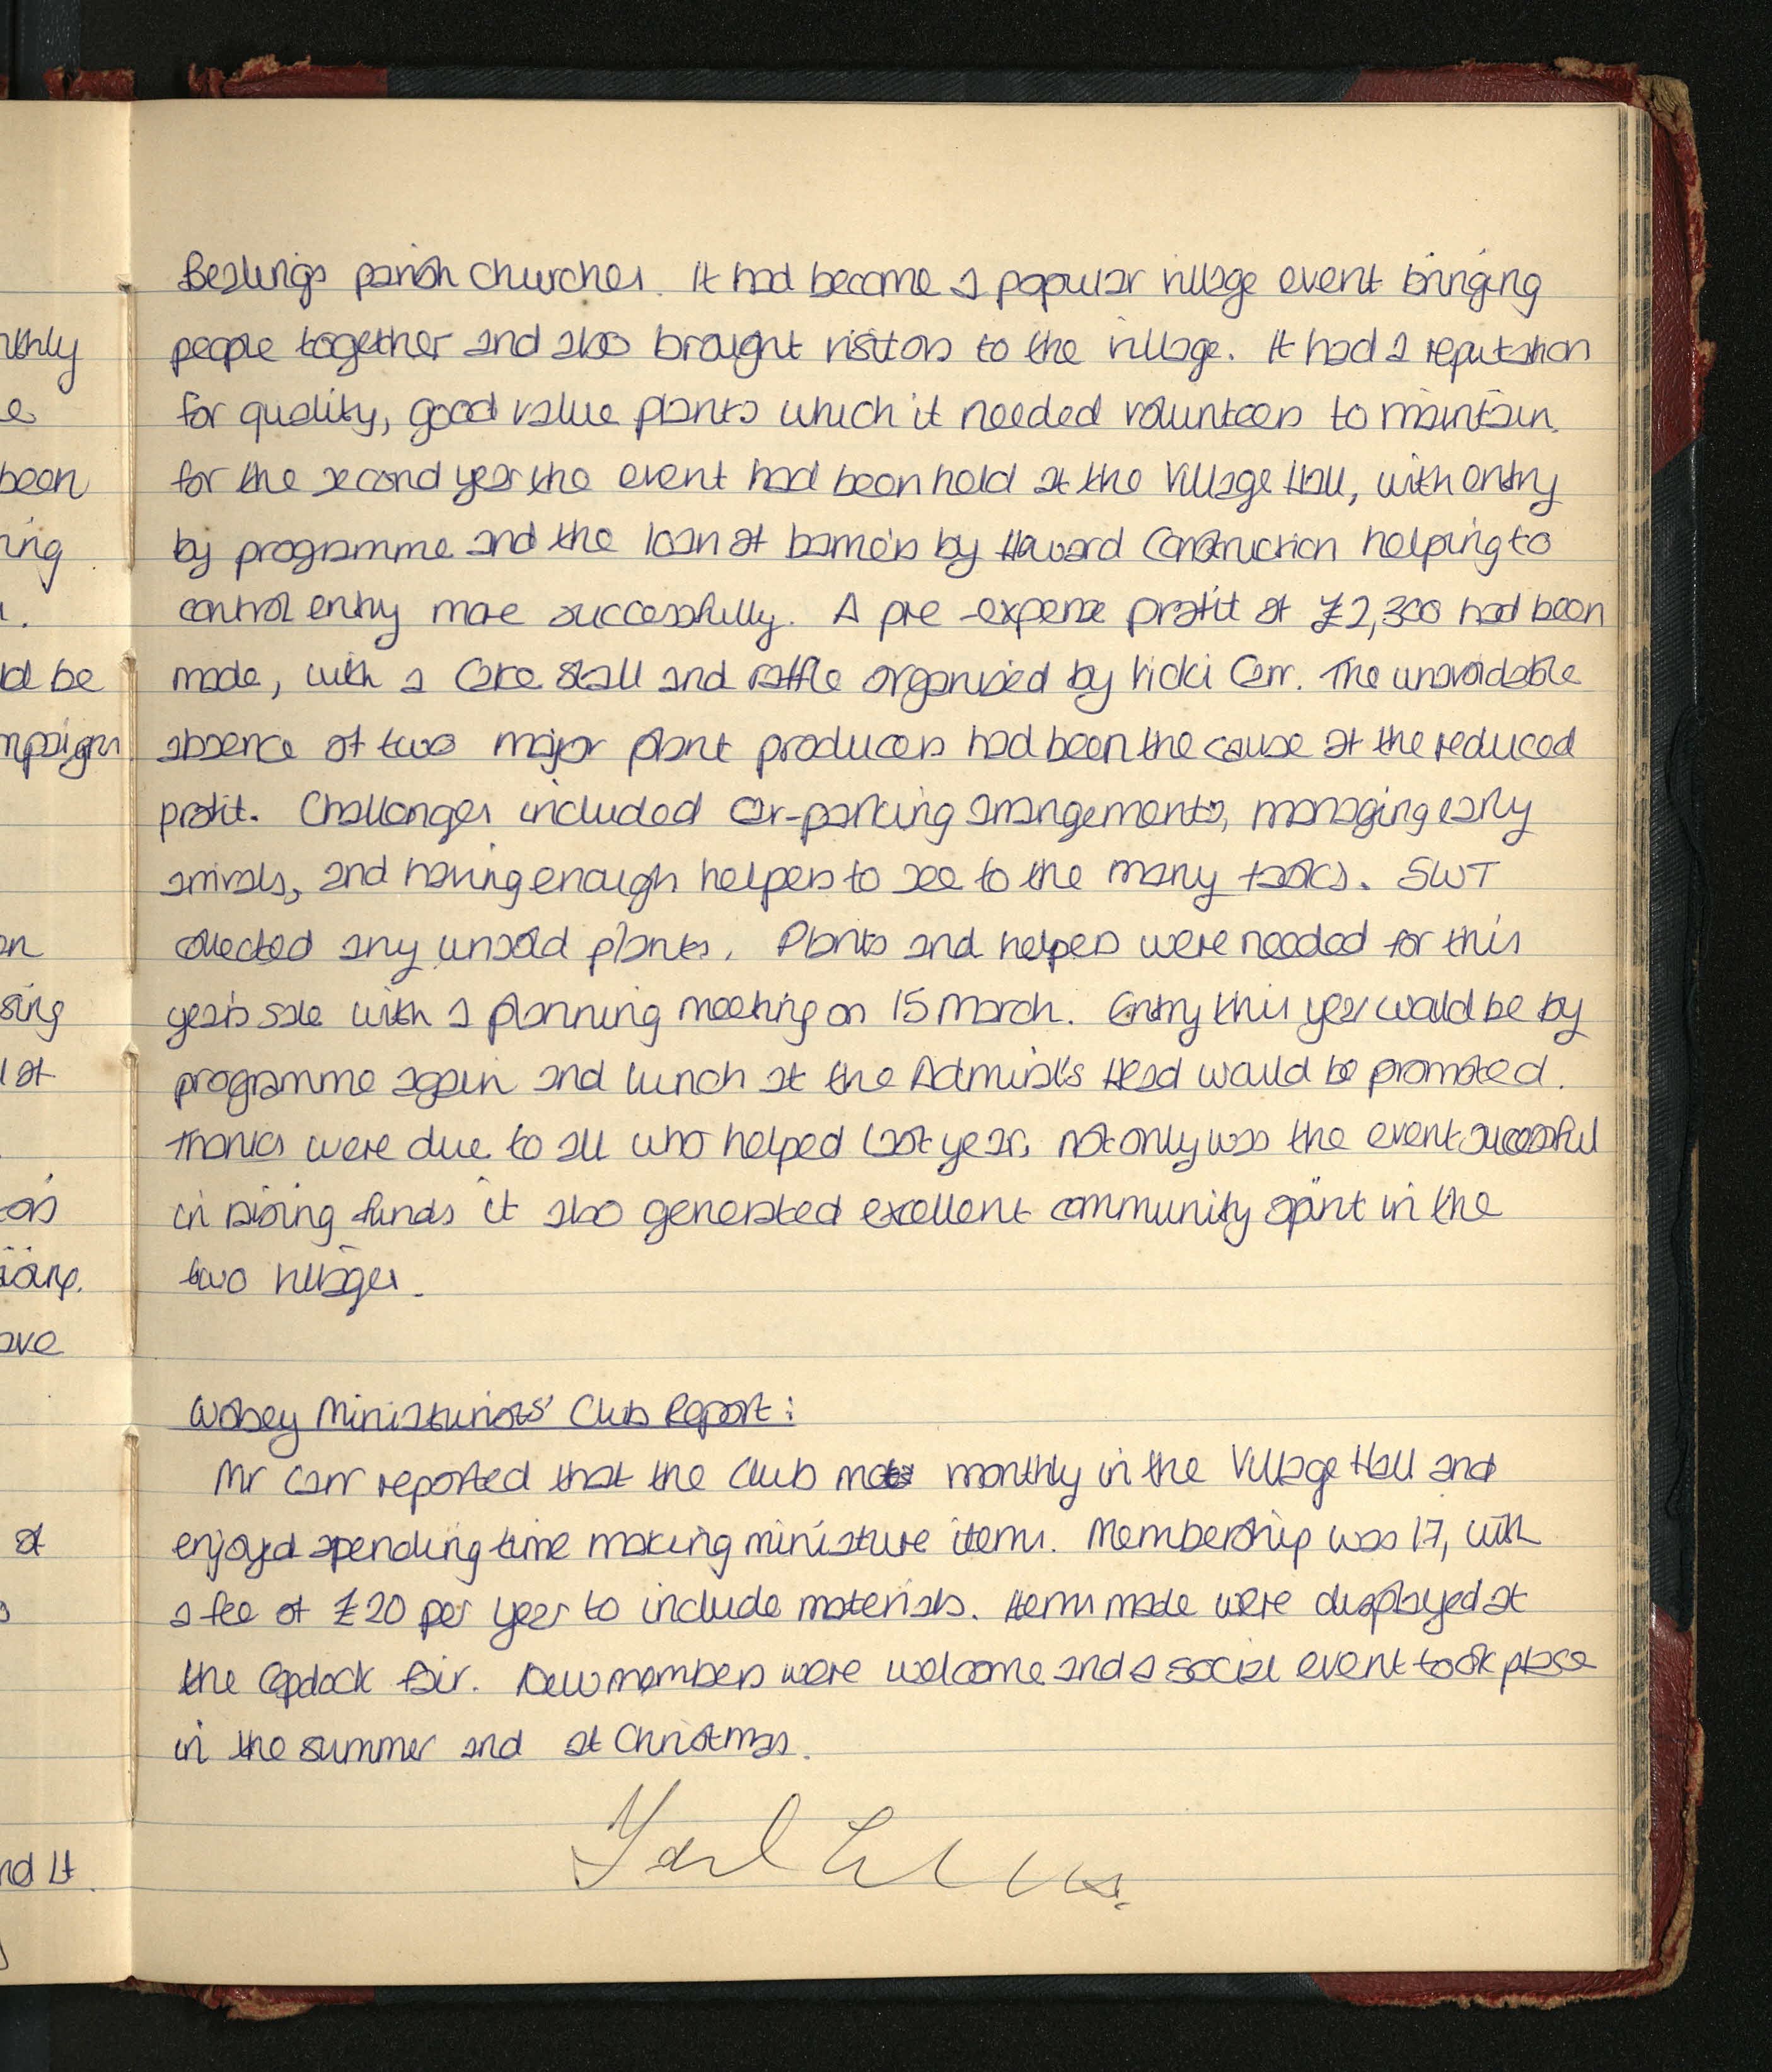 Bealings parish churches. It had become a popular village event bringing
people together and also brought visitors to the village. It had a reputation
for quality, good value plants which it needed volunteers to maintain.
For the second year the event had been held at the Village Hall, with entry
by programme and the loan of barriers by Haward Construction helping to
control entry more successfully. A pre-expense profit of £2,300 had been
made, with a Cake Stall and raffle organised by Vicki Carr. The unavoidable
absence of two major plant producers had been the cause of the reduced
profit. Challenges included car-parking arrangements, managing early
arrivals, and having enough helpers to see to the many tasks. SWT
collected any unsold plants. Plants and helpers were needed for this
year's sale with a planning meeting on 15 March. Entry this year would be by
programme again and lunch at the Admiral's Head would be promoted.
Thanks were due to all who helped last year, not only was the event successful
in raising funds it also generated excellent community spirit in the
two villages.
Miniaturists' Club Report:
Mr Carr reported that the Club met monthly in the Village Hall and
enjoyed spending time making miniature items. Membership was 17, with
a fee of £20 per year to include materials. Items made were displayed at
the Copdock Fair. New members were welcome and a social event took place
in the summer and at Christmas.